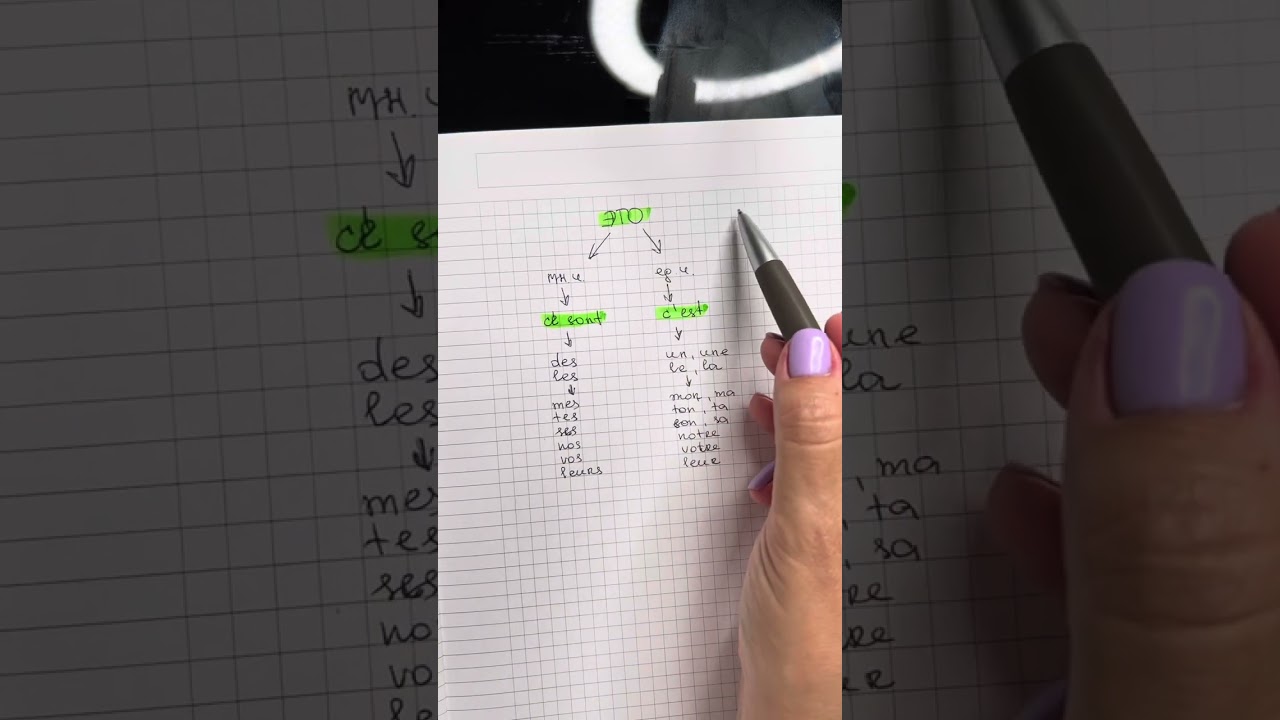 ЭТО
мн.ч.
ед.ч.
ce sont
c'est
des
les
un, une
le, la
mes
tes
ses
nos
vos
leurs
mon, ma
ton, ta
son, sa
notre
votre
leur